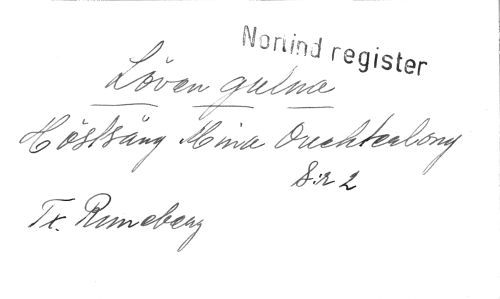 Norlind register
Löven gulna
Höstsång Mina
S:r 2
Tx. Runeberg